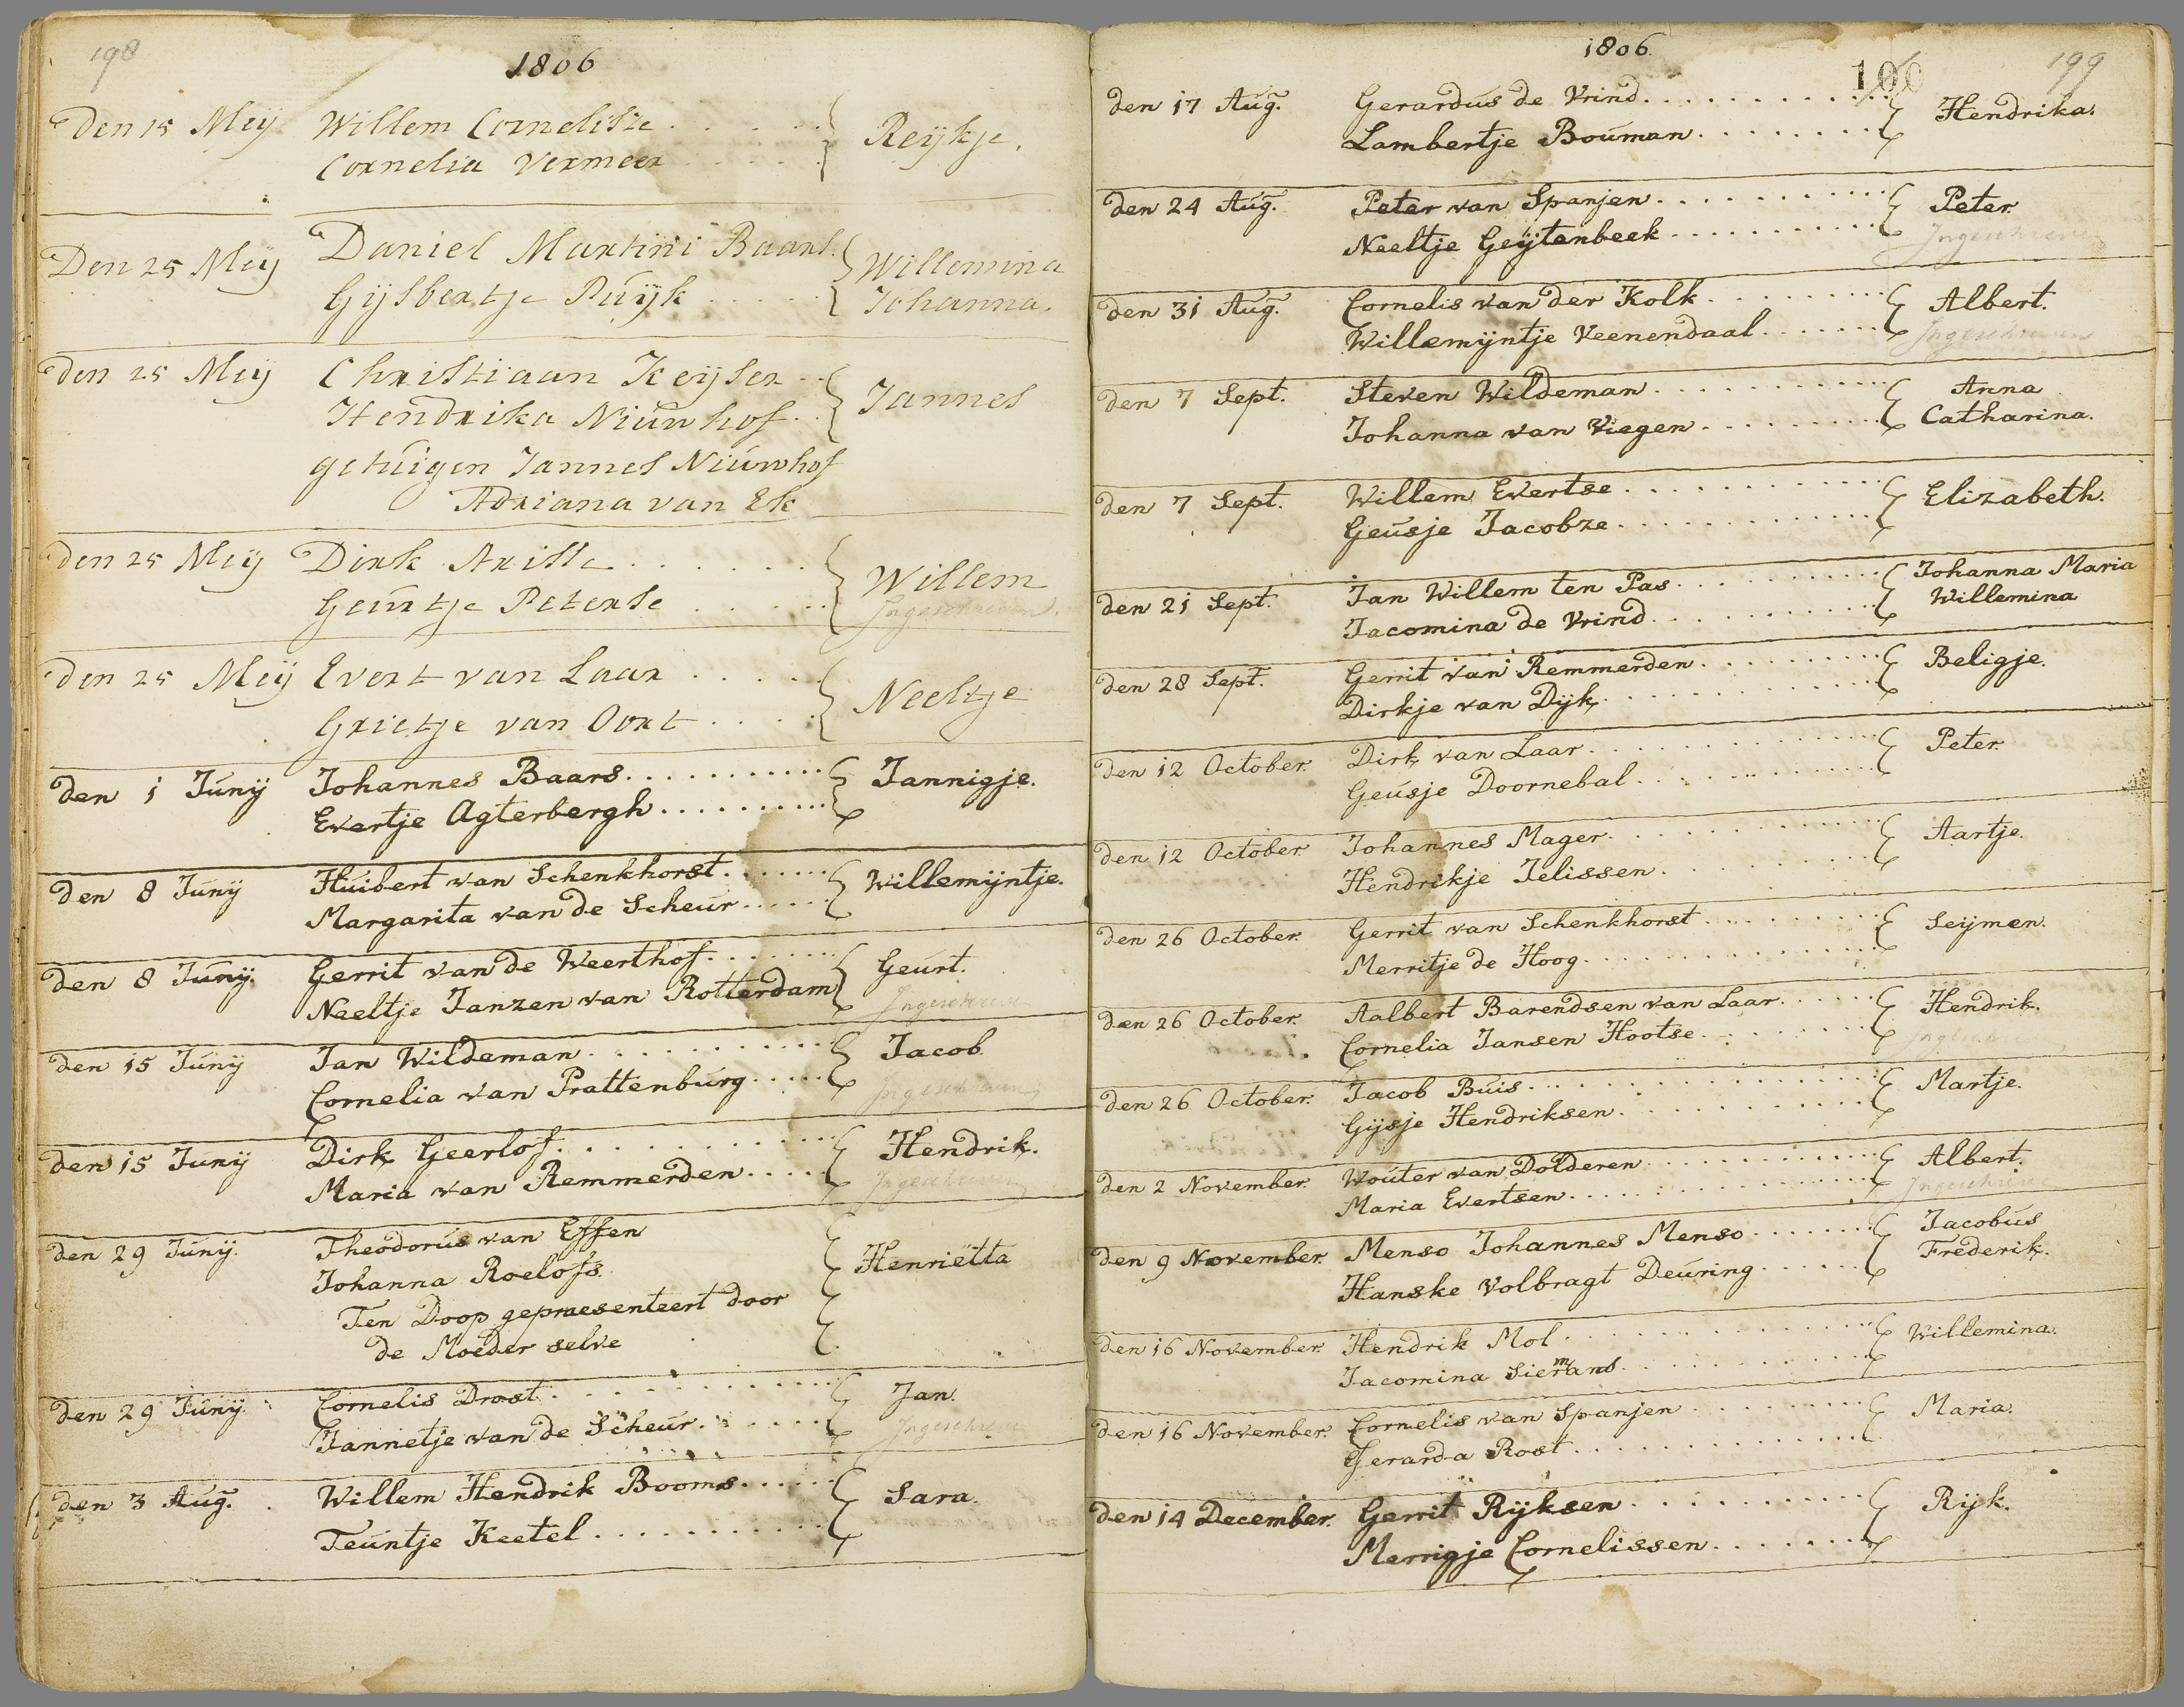 198
1806
Den 15 Meij Willem Cornelisze Reijkje.
Cornelia Vermeer
Den 25 Meij Daniel Martini Baars. Willemina
Gijsbertje Puijk Johanna.
den 25 Meij Christiaan Keijser Jannes
Hendrika Niuwhof
getuigen Jannes Niuwhof
Adriana van Ek
den 25 Meij Dirk Arisse Willem
Geurtje Peterse Ingeschreven.
den 25 Meij Evert van Laar Neeltje
Grietje van Oort
den 1 Junij Johannes Baars Jannigje.
Evertje Agterbergh
den 8 Junij Huibert van Schenkhorst Willemijntje.
Margarita van de Scheur
den 8 Junij. Gerrit van de Weerthof Geurt.
Neeltje Janzen van Rotterdam Ingeschreven
den 15 Junij Jan Wildeman Jacob.
Cornelia van Prattenburg Ingeschreven
den 15 Junij Dirk Geerlof Hendrik.
Maria van Remmerden Ingeschreven
den 29 Junij. Theodorus van Essen Henriëtta
Johanna Roelofs.
Ten Doop gepraesenteert door
de Moeder selve
den 29 Junij. Cornelis Drost Jan.
Jannetje van de Scheur Ingeschreven
den 3 Aug. Willem Hendrik Booms Sara.
Teuntje Keetel
1806.
100
199
den 17 Aug. Gerardus de Vrind Hendrika.
Lambertje Bouman
den 24 Aug. Peter van Spanjen Peter.
Neeltje Geijtenbeek Ingeschreven
den 31 Aug. Cornelis van der Kolk Albert.
Willemijntje Veenendaal Ingeschreven
den 7 Sept. Steven Wildeman Anna
Johanna van Viegen Catharina.
den 7 Sept. Willem Evertse Elizabeth.
Geusje Jacobze
den 21 Sept. Jan Willem ten Pas Johanna Maria
Jacomina de Vrind Willemina
den 28 Sept. Gerrit van Remmerden Beligje.
Dirkje van Dijk
den 12 October. Dirk van Laar Peter.
Geusje Doornebal
den 12 October. Johannes Mager Aartje.
Hendrikje Jelissen
den 26 October. Gerrit van Schenkhorst Seijmen.
Merritje de Hoog
den 26 October. Aalbert Barendsen van Laar Hendrik.
Cornelia Jansen Hootse
den 26 October. Jacob Buis Martje.
Gijsje Hendriksen
den 2 November. Wouter van Dolderen Albert.
Maria Evertsen Ingeschreven
den 9 November. Menso Johannes Menso Jacobus
Hanske Volbragt Deuring Frederik.
den 16 November. Hendrik Mol Willemina.
Jacomina Siermans
den 16 November. Cornelis van Spanjen Maria.
Gerarda Rost
den 14 December. Gerrit Rijksen Rijk.
Merrigje Cornelissen